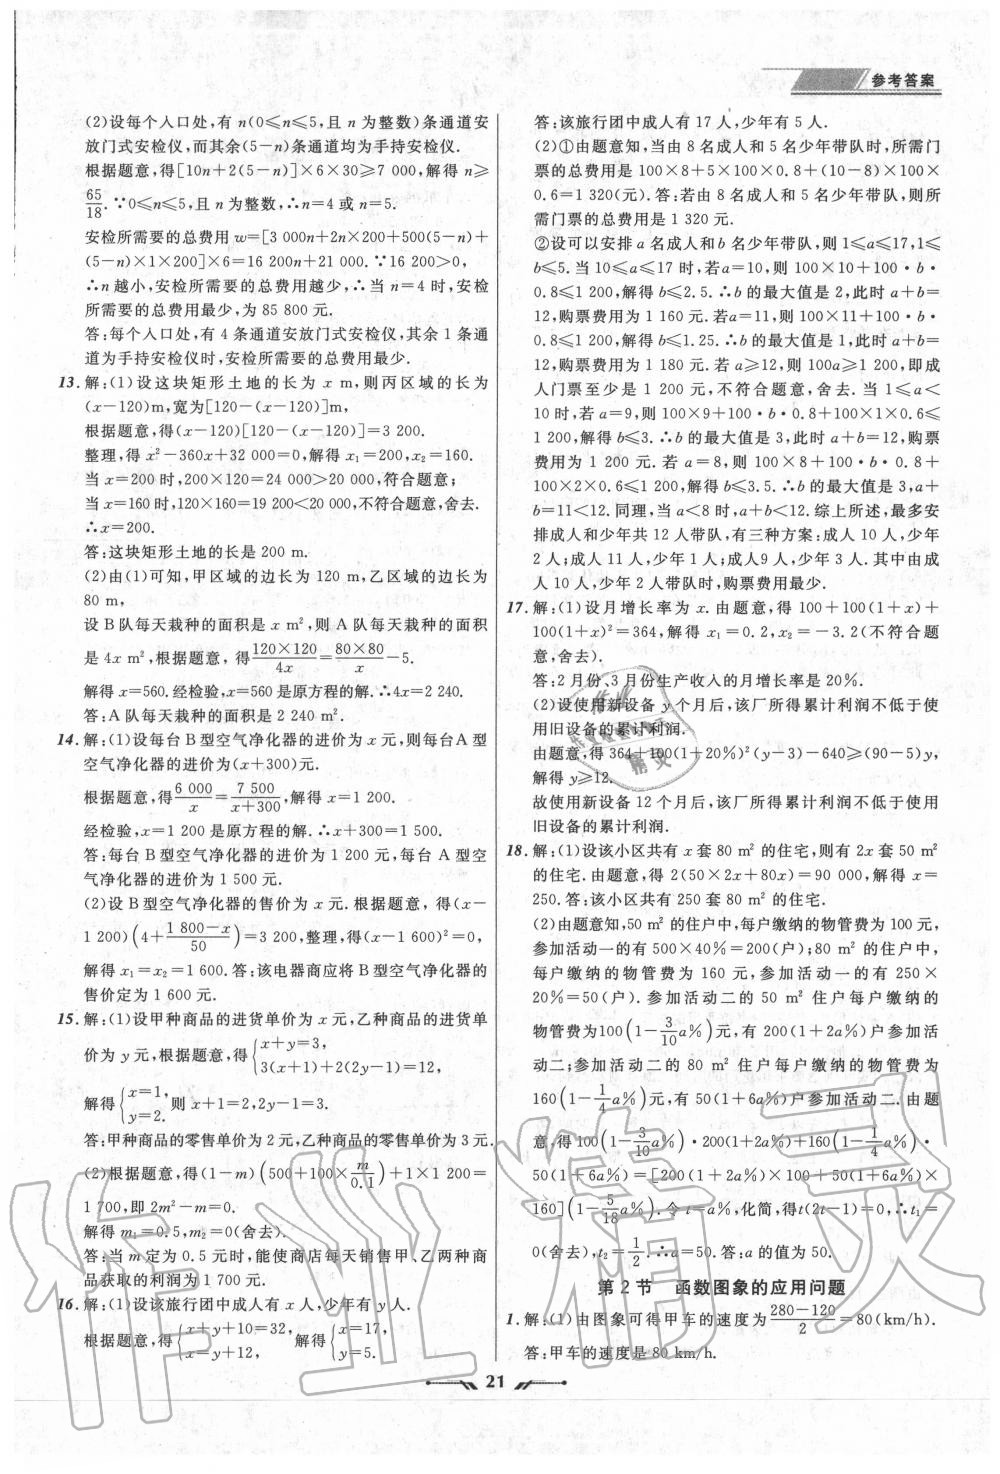 参考答案
(2)设每个人口处,有 n(0≤n≤5,且 n 为整数)条通道安
放门式安检仪,而其余(5-n)条通道均为手持安检仪.
根据题意,得[10n+2(5-n)]×6×30≥7 000,解得 n≥
65/18.∵0≤n≤5,且 n 为整数,∴n=4 或 n=5.
安检所需要的总费用 w=[3 000n+2n×200+500(5-n)+
(5-n)×1×200]×6=16 200n+21 000.∵16 200>0,
∴n 越小,安检所需要的总费用越少,∴当 n=4 时,安检
所需要的总费用最少,为 85 800 元.
答:每个人口处,有 4 条通道安放门式安检仪,其余 1 条通
道为手持安检仪时,安检所需要的总费用最少.
13. 解:(1)设这块矩形土地的长为 x m,则丙区域的长为
(x-120)m,宽为[120-(x-120)]m,
根据题意,得(x-120)[120-(x-120)]=3 200.
整理,得 x²-360x+32 000=0,解得 x₁=200,x₂=160.
当 x=200 时,200×120=24 000>20 000,符合题意;
当 x=160 时,120×160=19 200<20 000,不符合题意,舍去.
∴x=200.
答:这块矩形土地的长是 200 m.
(2)由(1)可知,甲区域的边长为 120 m,乙区域的边长为
80 m,
设 B 队每天栽种的面积是 x m²,则 A 队每天栽种的面积
是 4x m²,根据题意,得 120×120/4x=80×80/x-5.
解得 x=560.经检验,x=560 是原方程的解.∴4x=2 240.
答:A 队每天栽种的面积是 2 240 m².
14. 解:(1)设每台 B 型空气净化器的进价为 x 元,则每台 A 型
空气净化器的进价为(x+300)元.
根据题意,得 6 000/x=7 500/(x+300),解得 x=1 200.
经检验,x=1 200 是原方程的解.∴x+300=1 500.
答:每台 B 型空气净化器的进价为 1 200 元,每台 A 型空
气净化器的进价为 1 500 元.
(2)设 B 型空气净化器的售价为 x 元.根据题意,得(x-
1 200)(4+(1 800-x)/50)=3 200,整理,得(x-1 600)²=0,
解得 x₁=x₂=1 600.答:该电器商应将 B 型空气净化器的
售价定为 1 600 元.
15. 解:(1)设甲种商品的进货单价为 x 元,乙种商品的进货单
价为 y 元,根据题意,得{x+y=3, 3(x+1)+2(2y-1)=12,
解得{x=1, y=2. 则 x+1=2,2y-1=3.
答:甲种商品的零售单价为 2 元,乙种商品的零售单价为 3 元.
(2)根据题意,得(1-m)(500+100×m/0.1)+1×1 200=
1 700,即 2m²-m=0.
解得 m₁=0.5,m₂=0(舍去).
答:当 m 定为 0.5 元时,能使商店每天销售甲、乙两种商
品获取的利润为 1 700 元.
16. 解:(1)设该旅行团中成人有 x 人,少年有 y 人.
根据题意,得{x+y+10=32, x=y+12, 解得{x=17, y=5.
答:该旅行团中成人有 17 人,少年有 5 人.
(2)①由题意知,当由 8 名成人和 5 名少年带队时,所需门
票的总费用为 100×8+5×100×0.8+(10-8)×100×
0.6=1 320(元).答:若由 8 名成人和 5 名少年带队,则所
需门票的总费用为 1 320 元.
②设可以安排 a 名成人和 b 名少年带队,则 1≤a≤17,1≤
b≤5.当 10≤a≤17 时,若 a=10,则 100×10+100·b·
0.8≤1 200,解得 b≤2.5.∴b 的最大值是 2,此时 a+b=
12,购票费用为 1 160 元.若 a=11,则 100×11+100·b·
0.8≤1 200,解得 b≤1.25.∴b 的最大值是 1,此时 a+b=
12,购票费用为 1 180 元.若 a≥12,则 100a≥1200,即成
人门票至少是 1 200 元,不符合题意,舍去.当 1≤a<
10 时,若 a=9,则 100×9+100·b·0.8+100×1×0.6≤
1 200,解得 b≤3.∴b 的最大值是 3,此时 a+b=12,购票
费用为 1 200 元.若 a=8,则 100×8+100·b·0.8+
100×2×0.6≤1 200,解得 b≤3.5.∴b 的最大值是 3,此时 a+
b=11<12.同理,当 a<8 时,a+b<12.综上所述,最多安
排成人和少年共 12 人带队,有三种方案:成人 10 人,少年
2 人;成人 11 人,少年 1 人;成人 9 人,少年 3 人.其中当成
人 10 人,少年 2 人带队时,购票费用最少.
17. 解:(1)设月增长率为 x.由题意,得 100+100(1+x)+
100(1+x)²=364,解得 x₁=0.2,x₂=-3.2(不符合题
意,舍去).
答:2 月份、3 月份生产收入的月增长率是 20%.
(2)设使用新设备 y 个月后,该厂所得累计利润不低于使
用旧设备的累计利润.
由题意,得 364+100(1+20%)²(y-3)-640≥(90-5)y,
解得 y≥12.
故使用新设备 12 个月后,该厂所得累计利润不低于使用
旧设备的累计利润.
18. 解:(1)设该小区共有 x 套 80 m² 的住宅,则有 2x 套 50 m²
的住宅.由题意,得 2(50×2x+80x)=90 000,解得 x=
250.答:该小区共有 250 套 80 m² 的住宅.
(2)由题意知,50 m² 的住户中,每户缴纳的物管费为 100 元,
参加活动一的有 500×40%=200(户);80 m² 的住户中,
每户缴纳的物管费为 160 元,参加活动一的有 250×
20%=50(户).参加活动二的 50 m² 住户每户缴纳的
物管费为100(1-3/10a%)元,有 200(1+2a%)户参加活
动二;参加活动二的 80 m² 住户每户缴纳的物管费为
160(1-1/4a%)元,有 50(1+6a%)户参加活动二.由题
意,得 100(1-3/10a%)·200(1+2a%)+160(1-1/4a%)·
50(1+6a%)=[200(1+2a%)×100+50(1+6a%)×
160](1-5/18a%).令 t=a%,化简,得t(2t-1)=0,∴t₁=
0(舍去),t₂=1/2.∴a=50.答:a的值为 50.
第 2 节 函数图象的应用问题
1. 解:(1)由图象可得甲车的速度为(280-120)/2=80(km/h).
答:甲车的速度是 80 km/h.
21
作业精灵